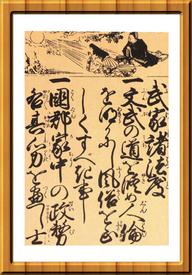 武家諸法度
一文武の道を修め人倫
を明かにし風俗を正
しくすべき事
一國郡家中の政務
各其心力を盡し士